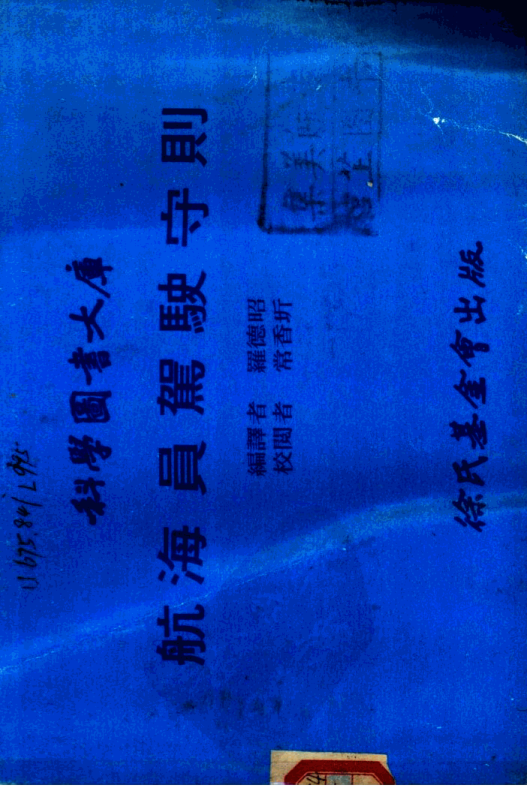 科學圖書大庫
航海員駕駛守則
編譯者 羅德昭
校閱者 常香圻
徐氏基金會出版